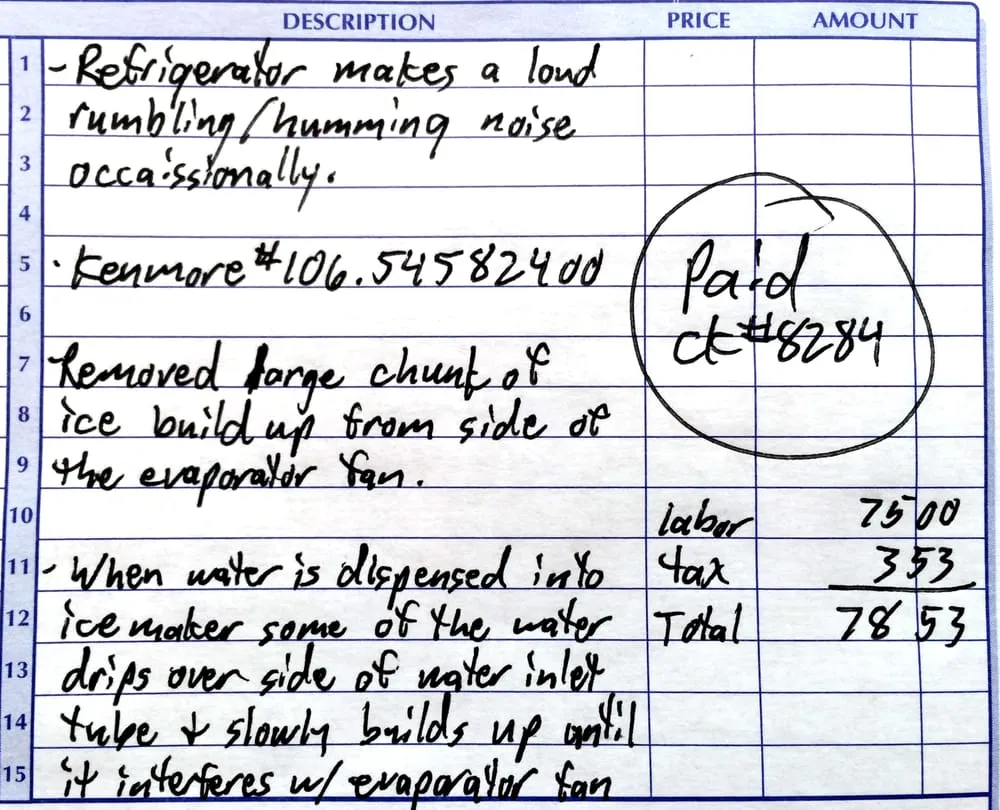 DESCRIPTION PRICE AMOUNT
1 - Refrigerator makes a loud
2 rumbling/humming noise
3 occaissionally.
4
5 · Kenmore #106.54582400
Paid
6
ct #8284
7 Removed large chunk of
8 ice build up from side of
9 the evaporator fan.
10 labor 75 00
11 - When water is dispensed into tax 3 53
12 ice maker some of the water Total 78 53
13 drips over side of water inlet
14 tube & slowly builds up until
15 it interferes w/ evaporator fan